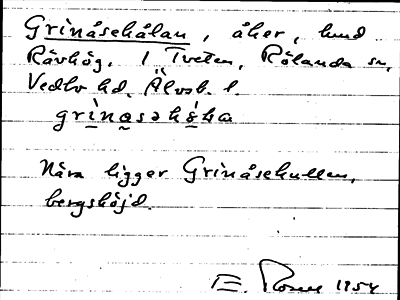 Grinåsehålan, åker, hund
Rävhög. 1 Tveten, Rölanda sn,
Vedbo hd. Älvsb. l.
grìnasehǫ́la
Nära ligger Grinåsekullen,
bergshöjd.
E. 1954